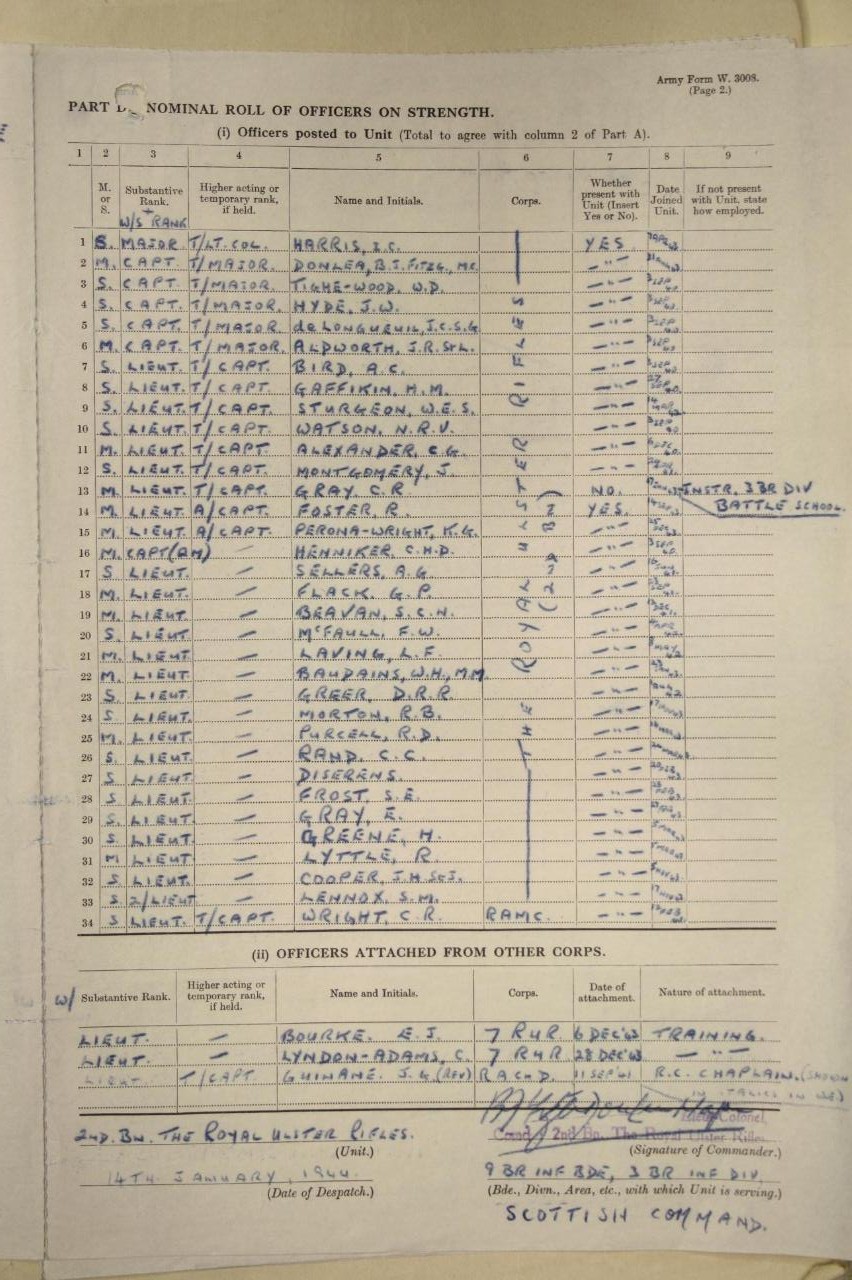 Army Form W. 3008.
(Page 2.)
PART NOMINAL ROLL OF OFFICERS ON STRENGTH.
(i) Officers posted to Unit (Total to agree with column 2 of Part A).
1 2 3 4 5 6 7 8 9
M. or S. Substantive Rank. + W/S RANK Higher acting or temporary rank, if held. Name and Initials. Corps. Whether present with Unit (Insert Yes or No). Date Joined Unit. If not present with Unit, state how employed.
THE ROYAL ULSTER RIFLES
1 S. MAJOR T/LT. COL. HARRIS, I.C. YES
2 M. CAPT. T/MAJOR. DONLEA, B.J. FITZG., MC. — " —
3 S. CAPT. T/MAJOR. TIGHE-WOOD, W.D. — " —
4 S. CAPT. T/MAJOR. HYDE, J.W. — " —
5 S. CAPT. T/MAJOR. de LONGUEUIL, J.C.S.G. — " —
6 M. CAPT. T/MAJOR. ALDWORTH, J.R. St L. — " —
7 S. LIEUT. T/CAPT. BIRD, A.C. — " —
8 S. LIEUT. T/CAPT. GAFFIKIN, H.M. — " —
9 S. LIEUT. T/CAPT. STURGEON, W.E.S. — " —
10 S. LIEUT. T/CAPT. WATSON, N.R.V. — " —
11 M. LIEUT. T/CAPT. ALEXANDER, C.G. — " —
12 S. LIEUT. T/CAPT. MONTGOMERY, J. — " —
13 M. LIEUT. T/CAPT. GRAY, C.R. NO. INSTR. 3 BR DIV
BATTLE SCHOOL.
14 M. LIEUT. A/CAPT. FOSTER, R. YES.
15 M. LIEUT. A/CAPT. PERONA-WRIGHT, K.G. — " —
16 M. CAPT(QM) — HENNIKER, C.H.D. — " —
17 S LIEUT. — SELLERS, A.G — " —
18 M. LIEUT. — FLACK, G.P. — " —
19 M. LIEUT. — BEAVAN, S.C.H. — " —
20 S. LIEUT. — McFAULL, F.W. — " —
21 M. LIEUT — LAVING, L.F. — " —
22 M. LIEUT — BAUDAINS, W.H., M.M. — " —
23 S. LIEUT — GREER, D.R.R. — " —
24 S LIEUT — MORTON, R.B. — " —
25 M. LIEUT. — PURCELL, R.D. — " —
26 S. LIEUT. — RAND, C.C. — " —
27 S LIEUT — DISERENS. — " —
28 S LIEUT. — FROST, S.E. — " —
29 S. LIEUT. — GRAY, E. — " —
30 S. LIEUT. — GREENE, H. — " —
31 M LIEUT — LYTTLE, R. — " —
32 S LIEUT. — COOPER, J.H. St J. — " —
33 S 2/LIEUT. — LENNOX, S.M. — " —
34 S LIEUT. T/CAPT. WRIGHT, C.R. RAMC. — " —
(ii) OFFICERS ATTACHED FROM OTHER CORPS.
W/ Substantive Rank. Higher acting or temporary rank, if held. Name and Initials. Corps. Date of attachment. Nature of attachment.
LIEUT. — BOURKE. E.J. 7 RUR 6 DEC'43 TRAINING.
LIEUT. — LYNDON-ADAMS, C. 7 RUR 28 DEC'43 — " —
LIEUT T/CAPT. GUINANE. J.G. (REV) RAChD. 11 SEP'41 R.C. CHAPLAIN. (SHOWN
IN ITALICS IN WE)
Lieut-Colonel,
Comd. 2nd Bn. The Royal Ulster Rifles
2ND. BN. THE ROYAL ULSTER RIFLES.
(Unit.) (Signature of Commander.)
14TH JANUARY, 1944. 9 BR INF BDE, 3 BR INF DIV.
(Date of Despatch.) (Bde., Divn., Area, etc., with which Unit is serving.)
SCOTTISH COMMAND.